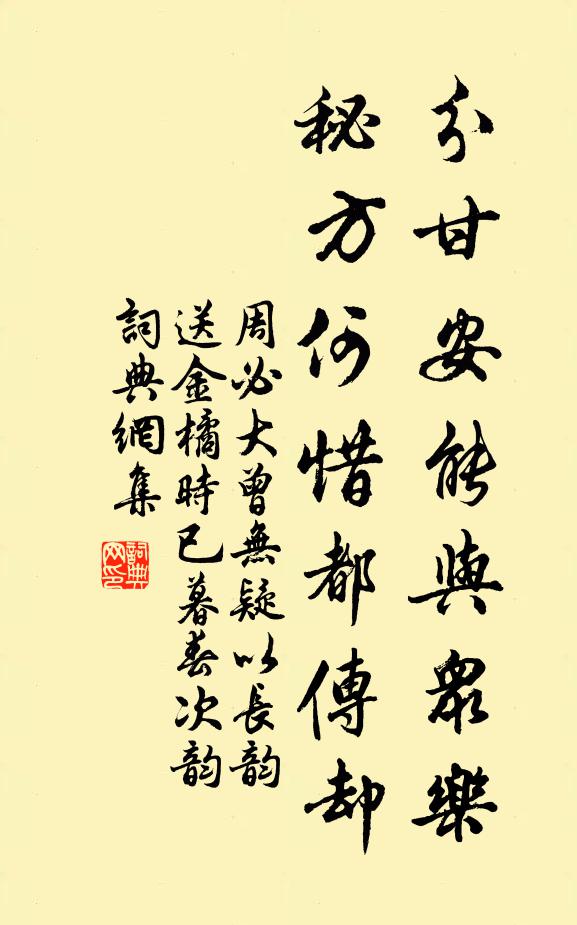 分甘安能與眾樂
秘方何惜都傳却
周必大曾無疑以長韵
送金橘時已暮春次韵
詞典網集
詞典网印